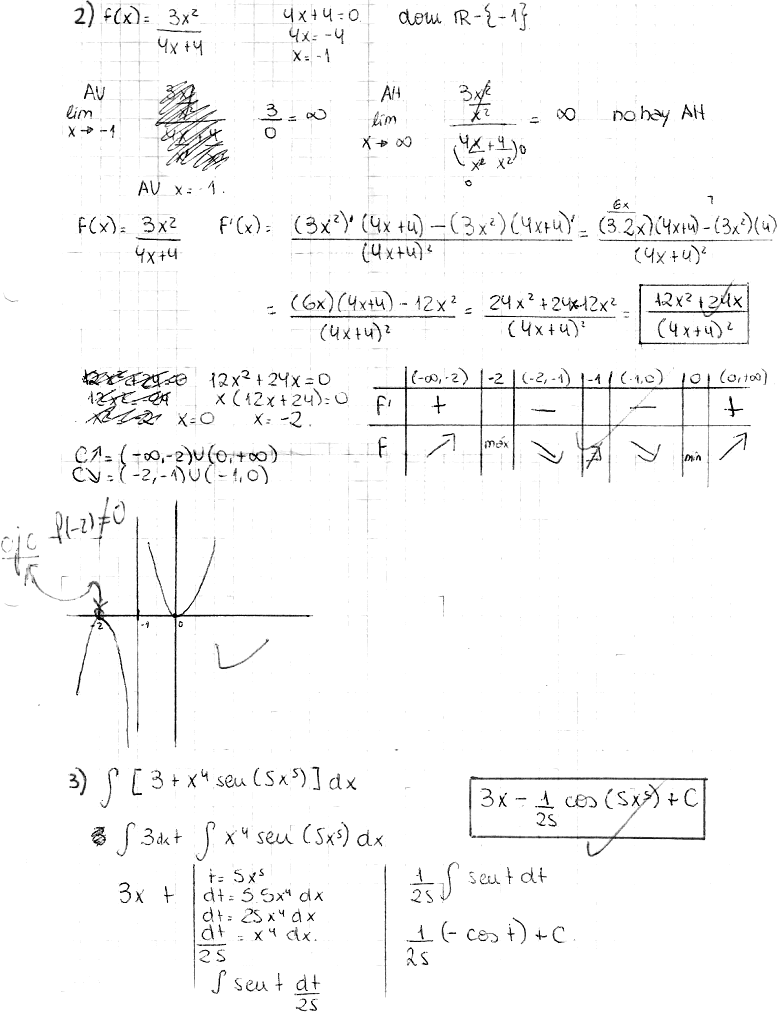 2) f(x) = 3x²/(4x+4)   4x+4=0   dom ℝ-{-1}
4x=-4
x=-1
AV lim x→-1   3/0 = ∞   AH lim x→∞ (3x²/x²)/(4x/x² + 4/x²) = ∞   no hay AH
0   0
AV x=-1.
F(x) = 3x²/(4x+4)   F'(x) = ((3x²)'(4x+4)-(3x²)(4x+4)')/(4x+4)² = ((3·2x)(4x+4)-(3x²)(4))/(4x+4)²
6x   ?
= ((6x)(4x+4)-12x²)/(4x+4)² = (24x²+24x-12x²)/(4x+4)² = (12x²+24x)/(4x+4)²
12x²+24x=0
x(12x+24)=0
x=0   x=-2.
C↗=(-∞,-2)∪(0,+∞)
C↘=(-2,-1)∪(-1,0)
(-∞,-2) | -2 | (-2,-1) | -1 | (-1,0) | 0 | (0,+∞)
F' | + | | - | | - | | +
F | ↗ | máx | ↘ | ∄ | ↘ | min | ↗
ojo   f(-2)≠0
-2   -1   0
3) ∫[3+x⁴ sen(5x⁵)]dx
3x - 1/25 cos(5x⁵) + C
∫3dx+ ∫x⁴ sen(5x⁵)dx
3x +
t=5x⁵
dt=5·5x⁴ dx
dt=25x⁴ dx
dt/25 = x⁴ dx.
∫ sen t dt/25
1/25 ∫ sen t dt
1/25 (- cos t)+C.